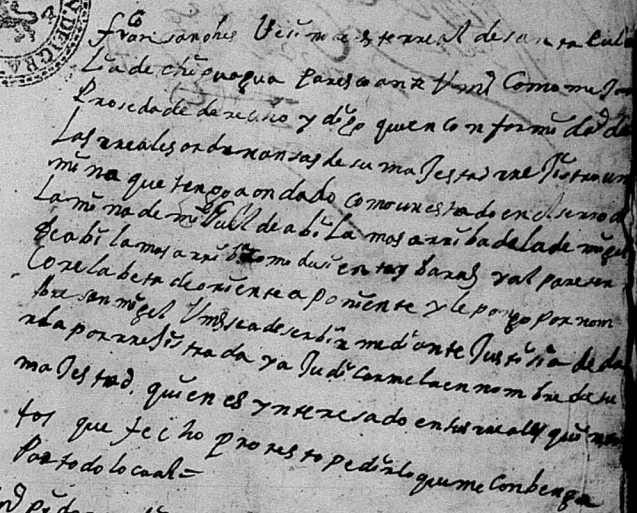 fran^co sanches Vesino deste rreal de santa Eula
Lia de chiguagua paresco ante Vmd Como mejor
Proseda de derecho y digo quen conformidad de
Las rreales ordenansas de su majestad rrejistro una
mina que tengo aondado como un estado en el serro de
La mina de miguel de abi La mas arriba de la de miguel
de abi la mas arriba como dusientas baras y al pareser
Core la beta de oriente a poniente y le pongo por nom
bre san miguel Vmd sea de serbir mediante Justisia de da
rla por rrejistrada y a Judicarmela en nombre de su
majestad. quien es ynteresado en sus rreales quin
tos que fecho protesto pedir lo que me Conbenga
Por todo lo cual =